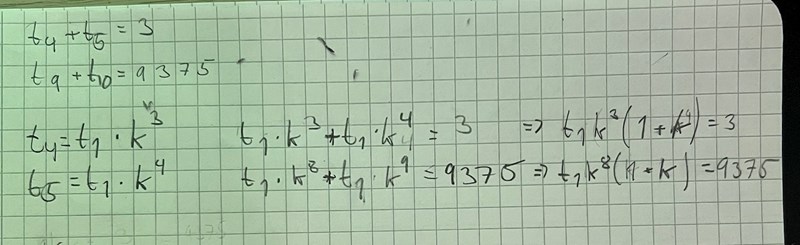 t₄ + t₅ = 3
t₉ + t₁₀ = 9375
t₄ = t₁ · k³ t₁ · k³ + t₁ · k⁴ = 3 => t₁k³(1 + k) = 3
t₅ = t₁ · k⁴ t₁ · k⁸ + t₁ · k⁹ = 9375 => t₁k⁸(1 + k) = 9375